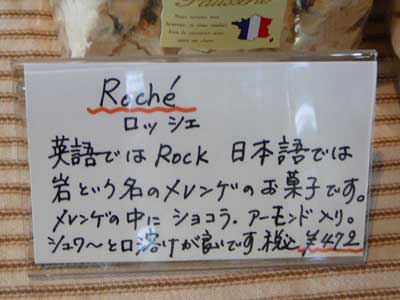 Pâtisserie
Roché
ロッシェ
英語では Rock 日本語では
岩という名のメレンゲのお菓子です。
メレンゲの中に ショコラ・アーモンド入り。
シュワ〜と口溶けが良いです。税込 ¥472